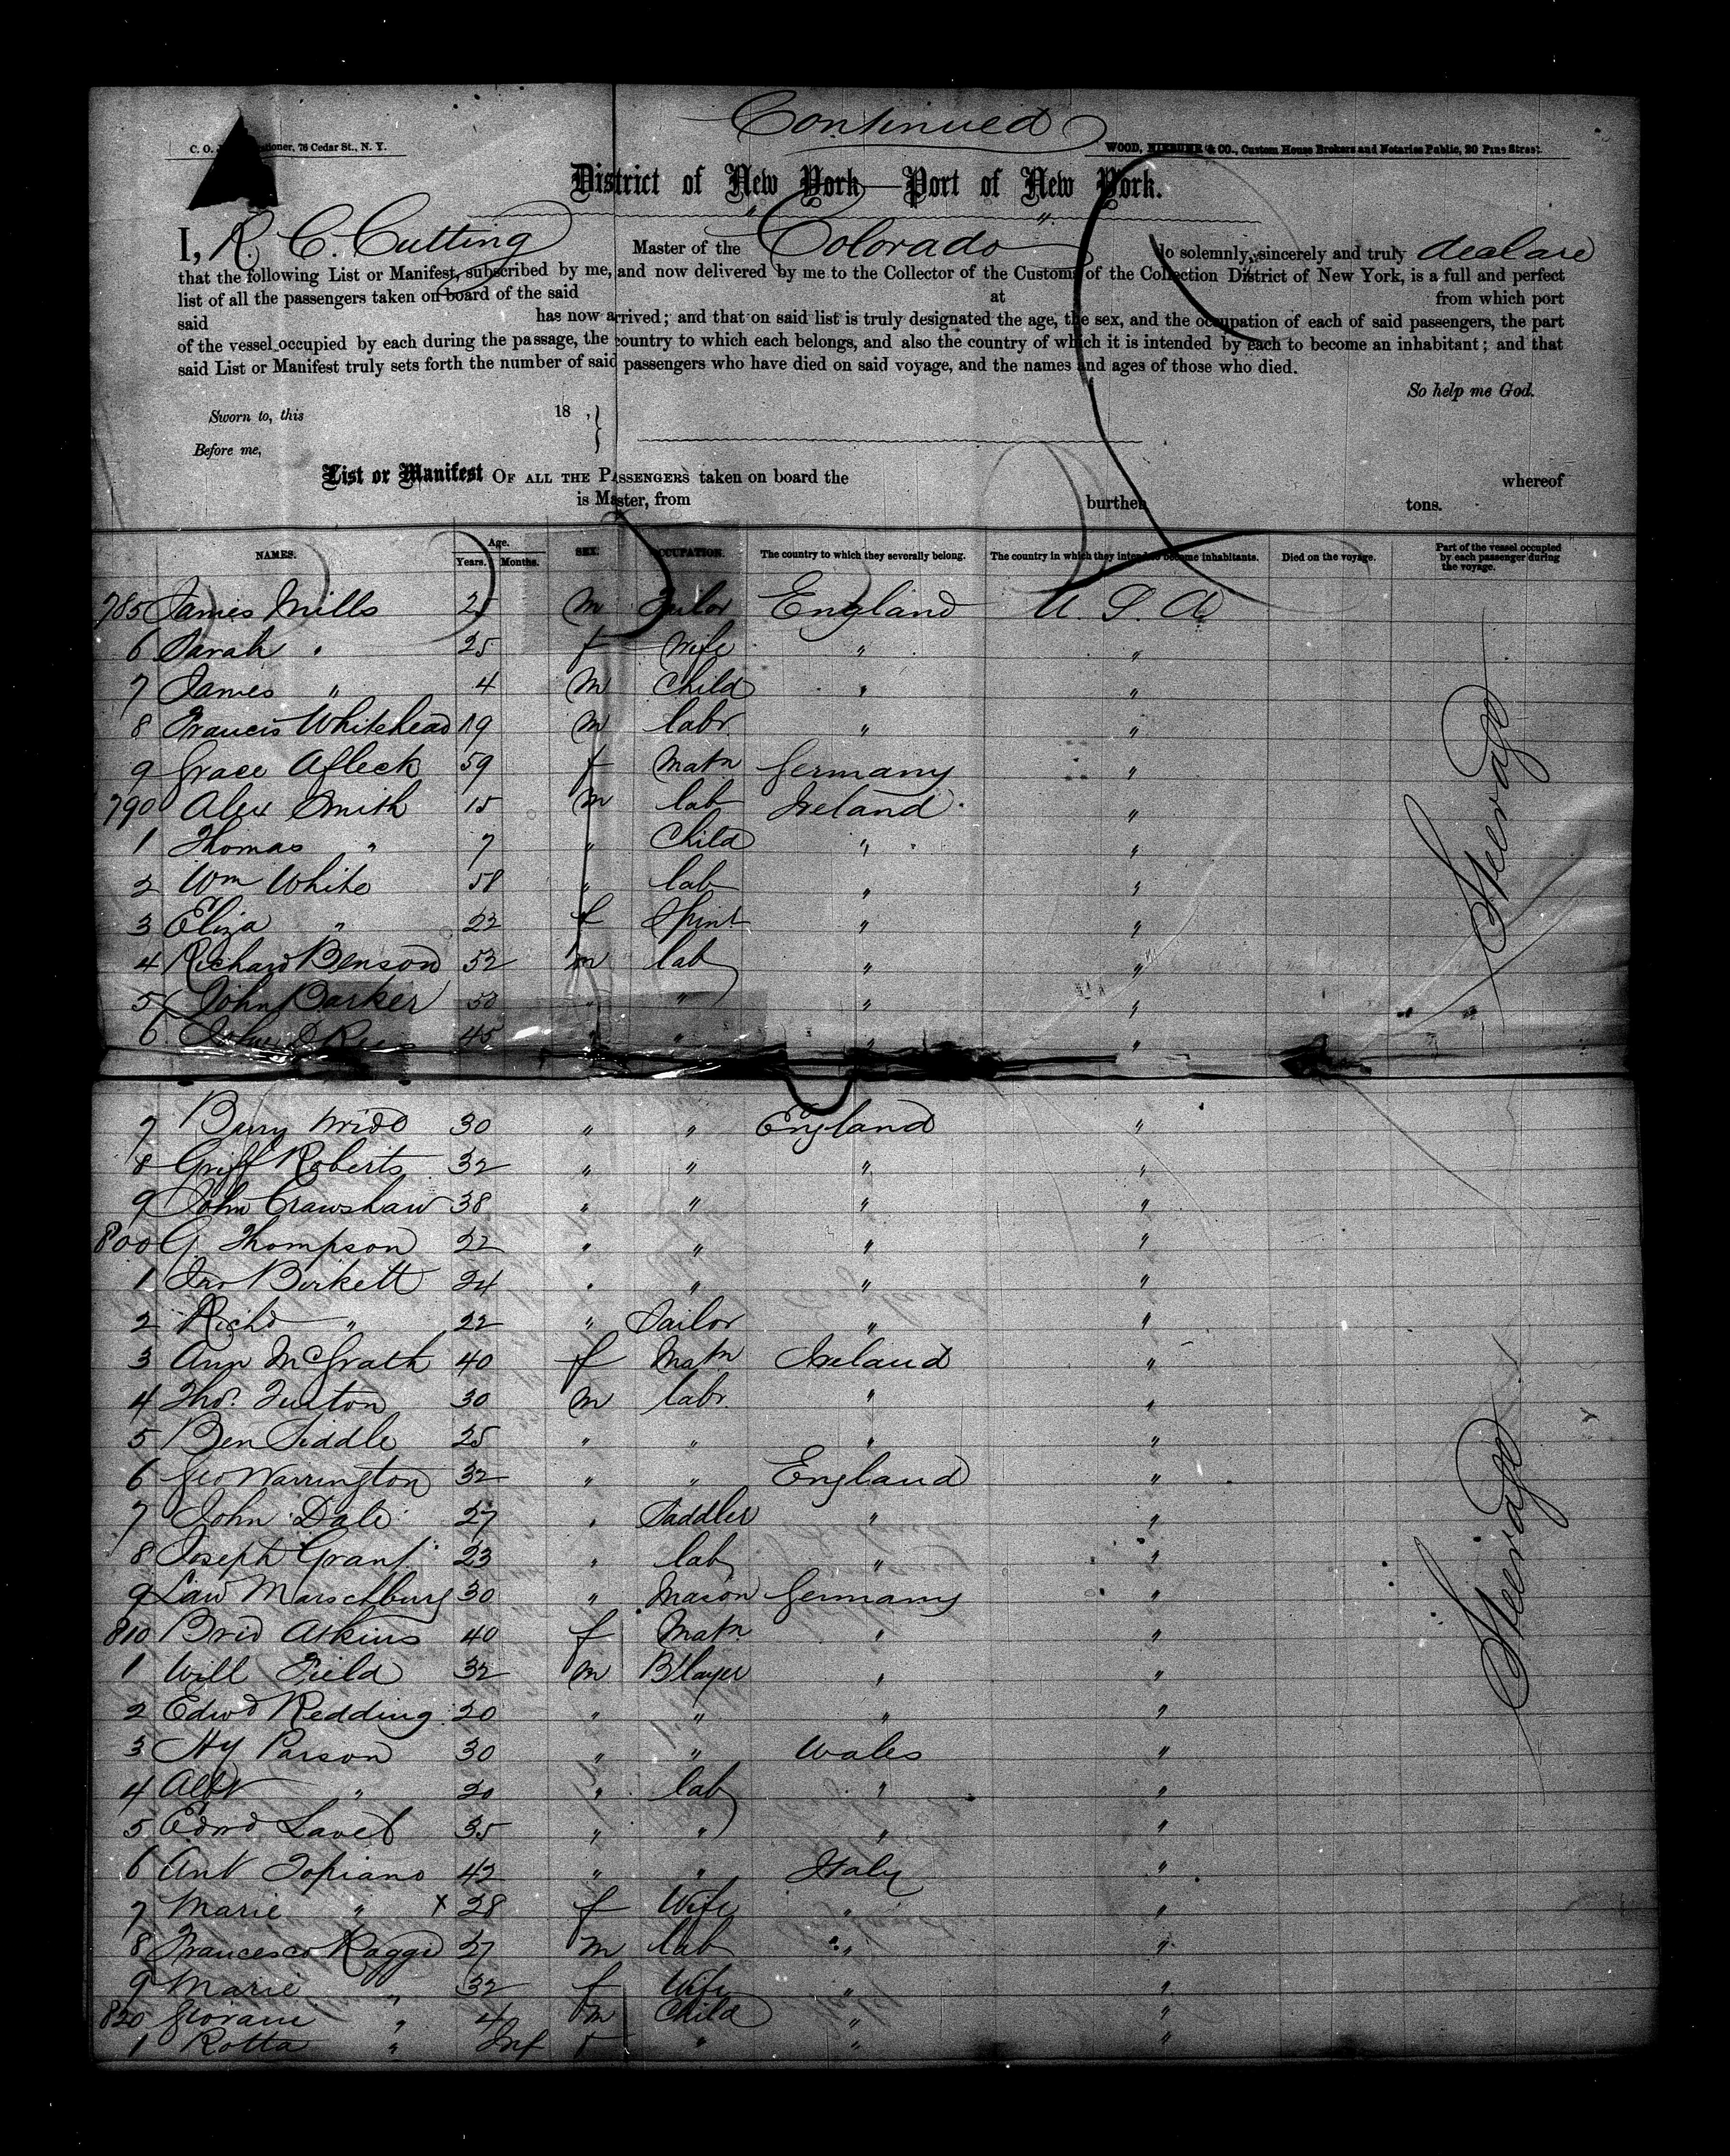 Continued
C. O. tioner, 76 Cedar St., N. Y.
WOOD, NIEBUHR & CO., Custom House Brokers and Notaries Public, 20 Pine Street
District of New York—Port of New York.
I, R. C. Cutting Master of the Colorado do solemnly, sincerely and truly declare
that the following List or Manifest, subscribed by me, and now delivered by me to the Collector of the Customs of the Collection District of New York, is a full and perfect
list of all the passengers taken on board of the said at from which port
said has now arrived; and that on said list is truly designated the age, the sex, and the occupation of each of said passengers, the part
of the vessel occupied by each during the passage, the country to which each belongs, and also the country of which it is intended by each to become an inhabitant; and that
said List or Manifest truly sets forth the number of said passengers who have died on said voyage, and the names and ages of those who died.
So help me God.
Sworn to, this 18 ,
Before me,
List or Manifest OF ALL THE PASSENGERS taken on board the whereof
is Master, from burthen tons.
NAMES. Age. Years. Months. SEX. OCCUPATION. The country to which they severally belong. The country in which they intend to become inhabitants. Died on the voyage. Part of the vessel occupied by each passenger during the voyage.
785 James Mills 25 m England U. S. A
6 Sarah " 25 f Wife " "
7 James " 4 m Child " "
8 Francis Whitehead 19 m labr " "
9 Grace Afleck 59 f Matn Germany "
790 Alex Smith 15 m lab Ireland "
1 Thomas " 7 " Child " "
2 Wm White 58 " lab " "
3 Eliza " 22 f Spins " "
4 Richard Benson 52 m lab " "
5 John Barker 50 " " " "
6 John 45 " " " "
Steerage
7 Barry 30 " " England "
8 Griff Roberts 32 " " " "
9 John Crawshaw 38 " " " "
800 G. Thompson 22 " " " "
1 Jno Birkett 24 " " " "
2 Richd " 22 " Sailor " "
3 Ann McGrath 40 f Matn Ireland "
4 Thos. Fulton 30 m labr. " "
5 Ben Siddle 25 " " " "
6 Geo Warrington 32 " " England "
7 John Dale 27 " Saddler " "
8 Joseph Grant 23 " lab " "
9 Law Marschburg 30 " Mason Germany "
810 Brid Atkins 40 f Matn " "
1 Will Field 32 m Blayer " "
2 Edwd Redding 20 " " " "
3 Hy Parson 30 " " Wales "
4 Albt " 20 " lab " "
5 Edwd 35 " " " "
6 Ant Topiano 42 " " Italy "
7 Marie " x 28 f Wife " "
8 Francesco Raggi 27 m lab " "
9 Marie " 32 f Wife " "
820 Giovani " 4 m Child " "
1 Rotta " Inf f " " "
Steerage